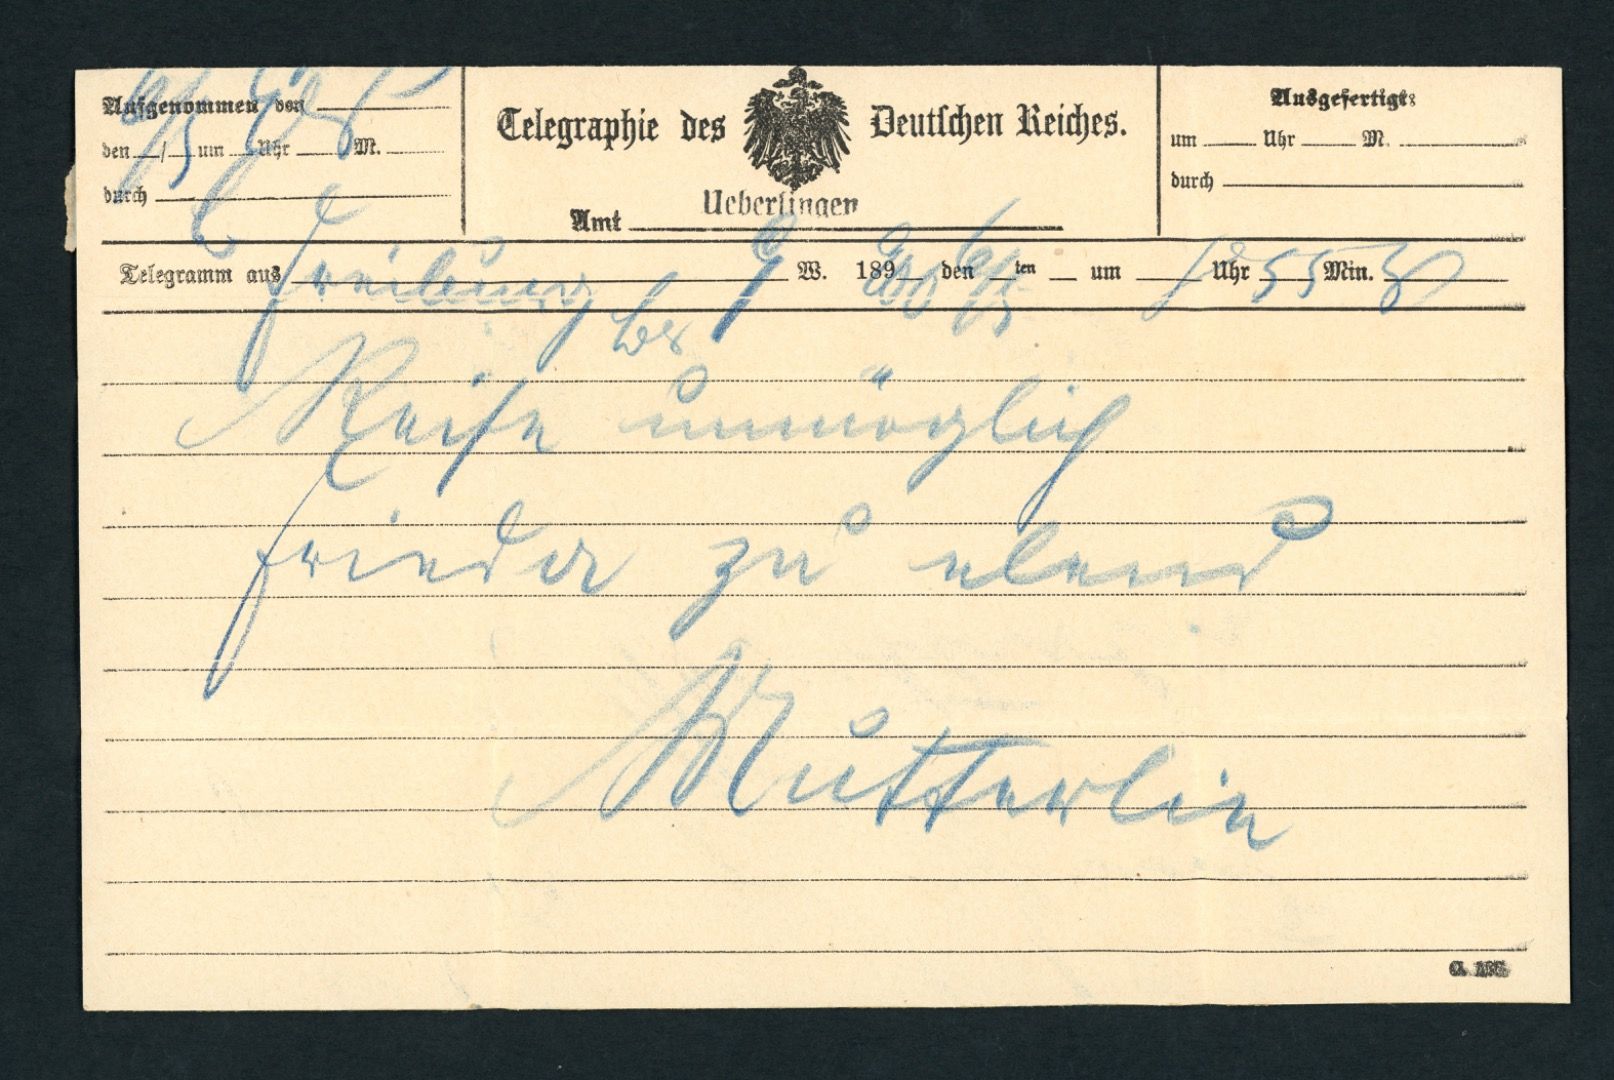 Aufgenommen von
den / um Uhr M.
durch
Telegraphie des Deutschen Reiches.
Amt Ueberlingen
Ausgefertigt:
um Uhr M.
durch
Telegramm aus Freiburg W. 189 den ten um Uhr 55 Min.
Reise unmöglich
Frieder zu elend
Mutterlin